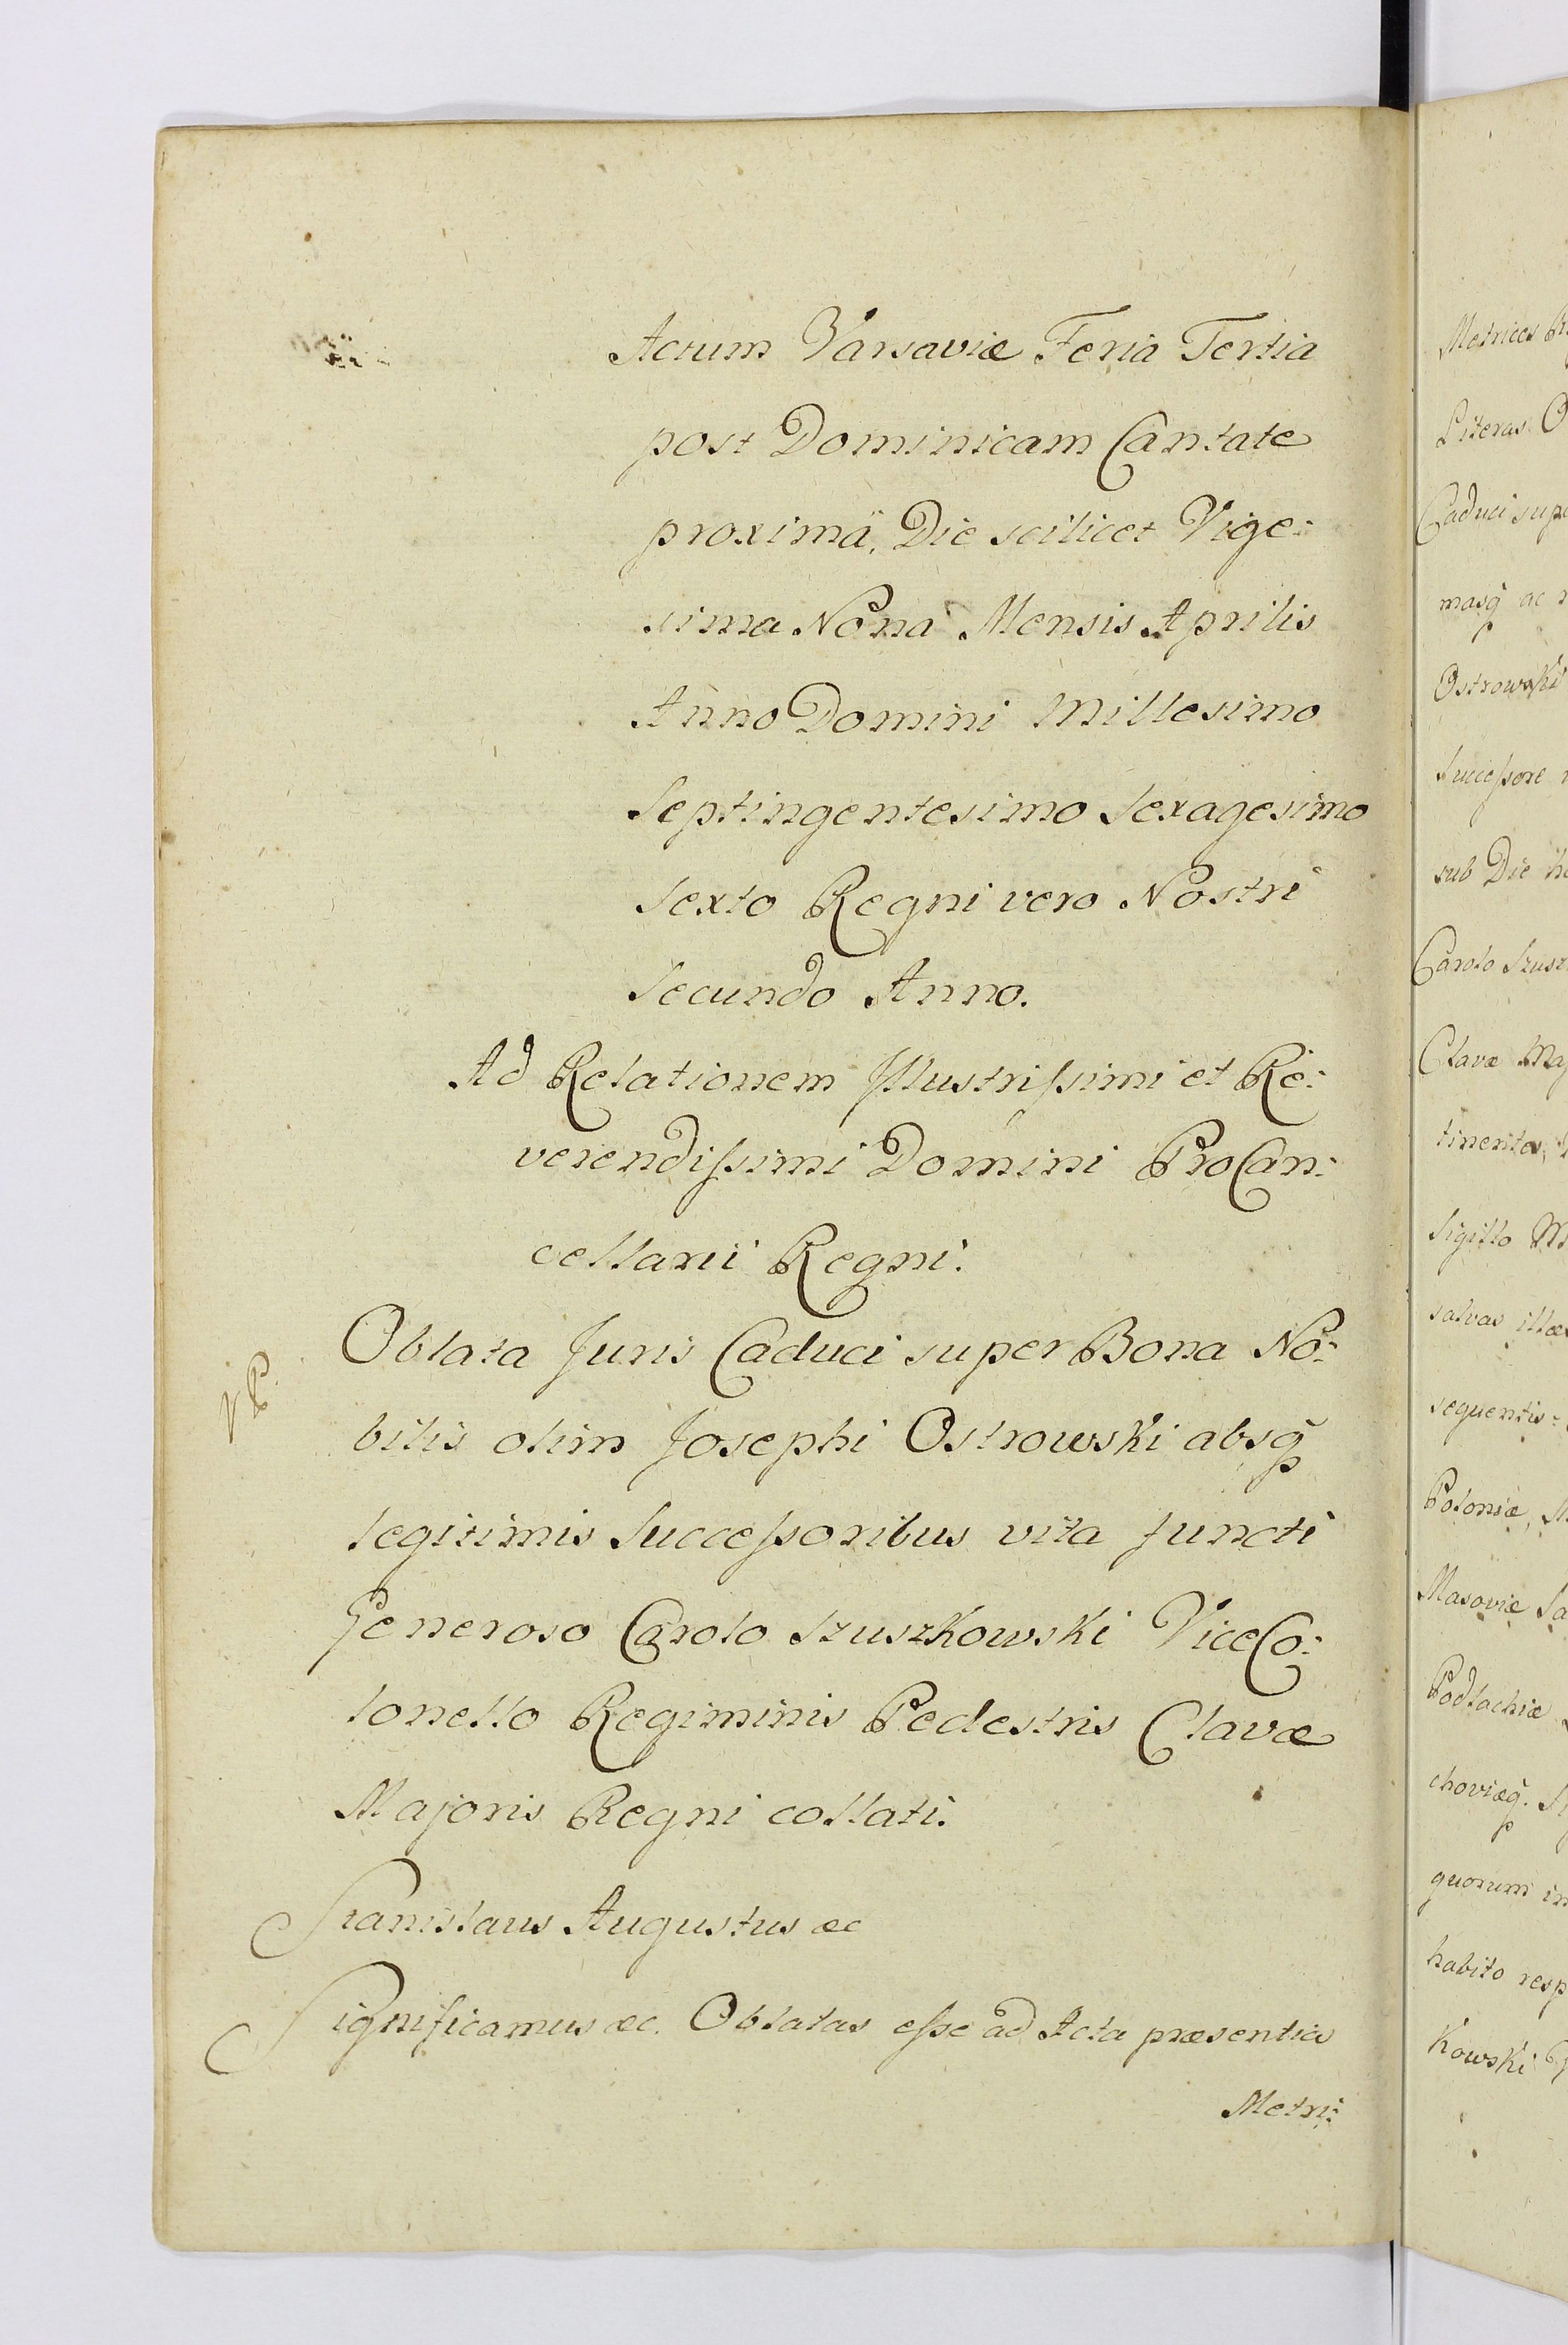 Actum Varsaviæ Feria Tertia
post Dominicam Cantate
proximâ, Die scilicet Vige:
sima Nona Mensis Aprilis
Anno Domini Millesimo
Septingentesimo Sexagesimo
Sexto Regni vero Nostri
Secundo Anno.
Ad Relationem Illustrissimi et Re:
verendissimi Domini ProCan:
cellarii Regni.
Oblata Juris Caduci super Bona No:
bilis olim Josephi Ostrowski absq̃
legitimis Successoribus vita functi
Generoso Carolo Szuszkowski ViceCo:
lonello Regiminis Pedestris Clavæ
Majoris Regni collati.
Stanislaus Augustus &c
Significamus &c. Oblatas esse ad Acta præsentia
Metri:
Metrices
Literas
Caduci
masq̃ ac
Ostrowski
Successore
sub Die
Carolo
Clavæ
Sigillo
salvas
Poloniæ,
Masoviæ
Podlachiæ
choviæq̃.
quorum
habito
kowski